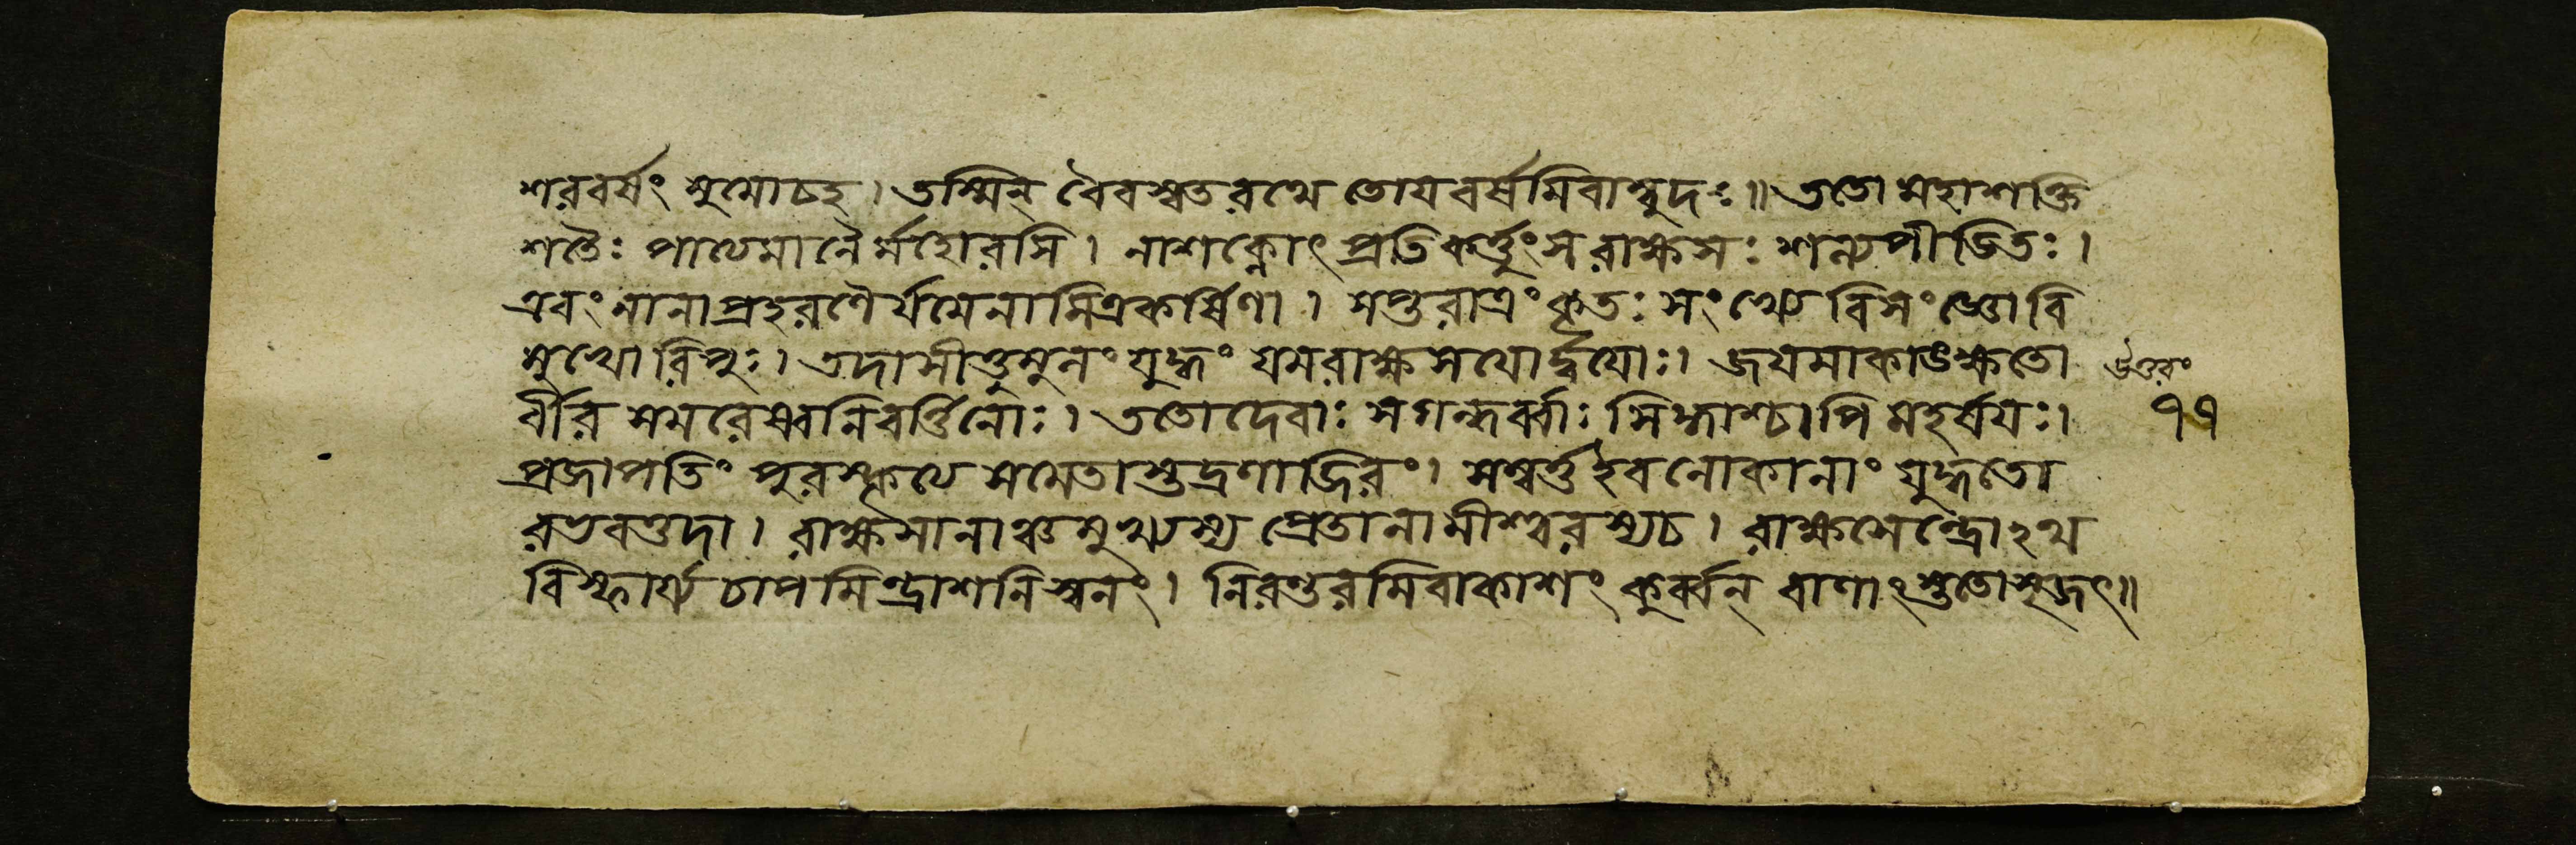 শরবর্ষং মুমোচহ। তস্মিন্ বৈবস্বতরথে তোযবর্ষমিবাম্বুদঃ॥ ততো মহাশক্তি
শতৈঃ পাত্যমানৈর্মহোরসি। নাশক্নোৎ প্রতিকর্ত্তুং স রাক্ষসঃ শল্যপীডিতঃ।
এবং নানাপ্রহরণৈর্যমেনামিত্রকর্ষিণা। সপ্তরাত্রং কৃতঃ সংখ্যে বিসংজ্ঞো বি
মুখো রিপুঃ। তদাসীত্তুমুলং যুদ্ধং যমরাক্ষসযোর্দ্বযোঃ। জযমাকাঙক্ষতো
র্বীর সমরেষ্বনিবর্ত্তিনোঃ। ততো দেবাঃ সগন্ধর্ব্বাঃ সিদ্ধাশ্চাপি মহর্ষযঃ।
প্রজাপতিং পুরস্কৃত্য সমেতাস্তদ্রণাজিরং। সম্বর্ত্ত ইব লোকানাং যুদ্ধতো
রভবত্তদা। রাক্ষসানাঞ্চ মুখ্যস্য প্রেতানামীশ্বরস্যচ। রাক্ষসেন্দ্রোঽথ
বিস্ফার্য্য চাপমিন্দ্রাশনিস্বনং। নিরন্তরমিবাকাশং কুর্ব্বন্ বাণাংস্ততোসৃজৎ॥
উত্তরং
৭৭